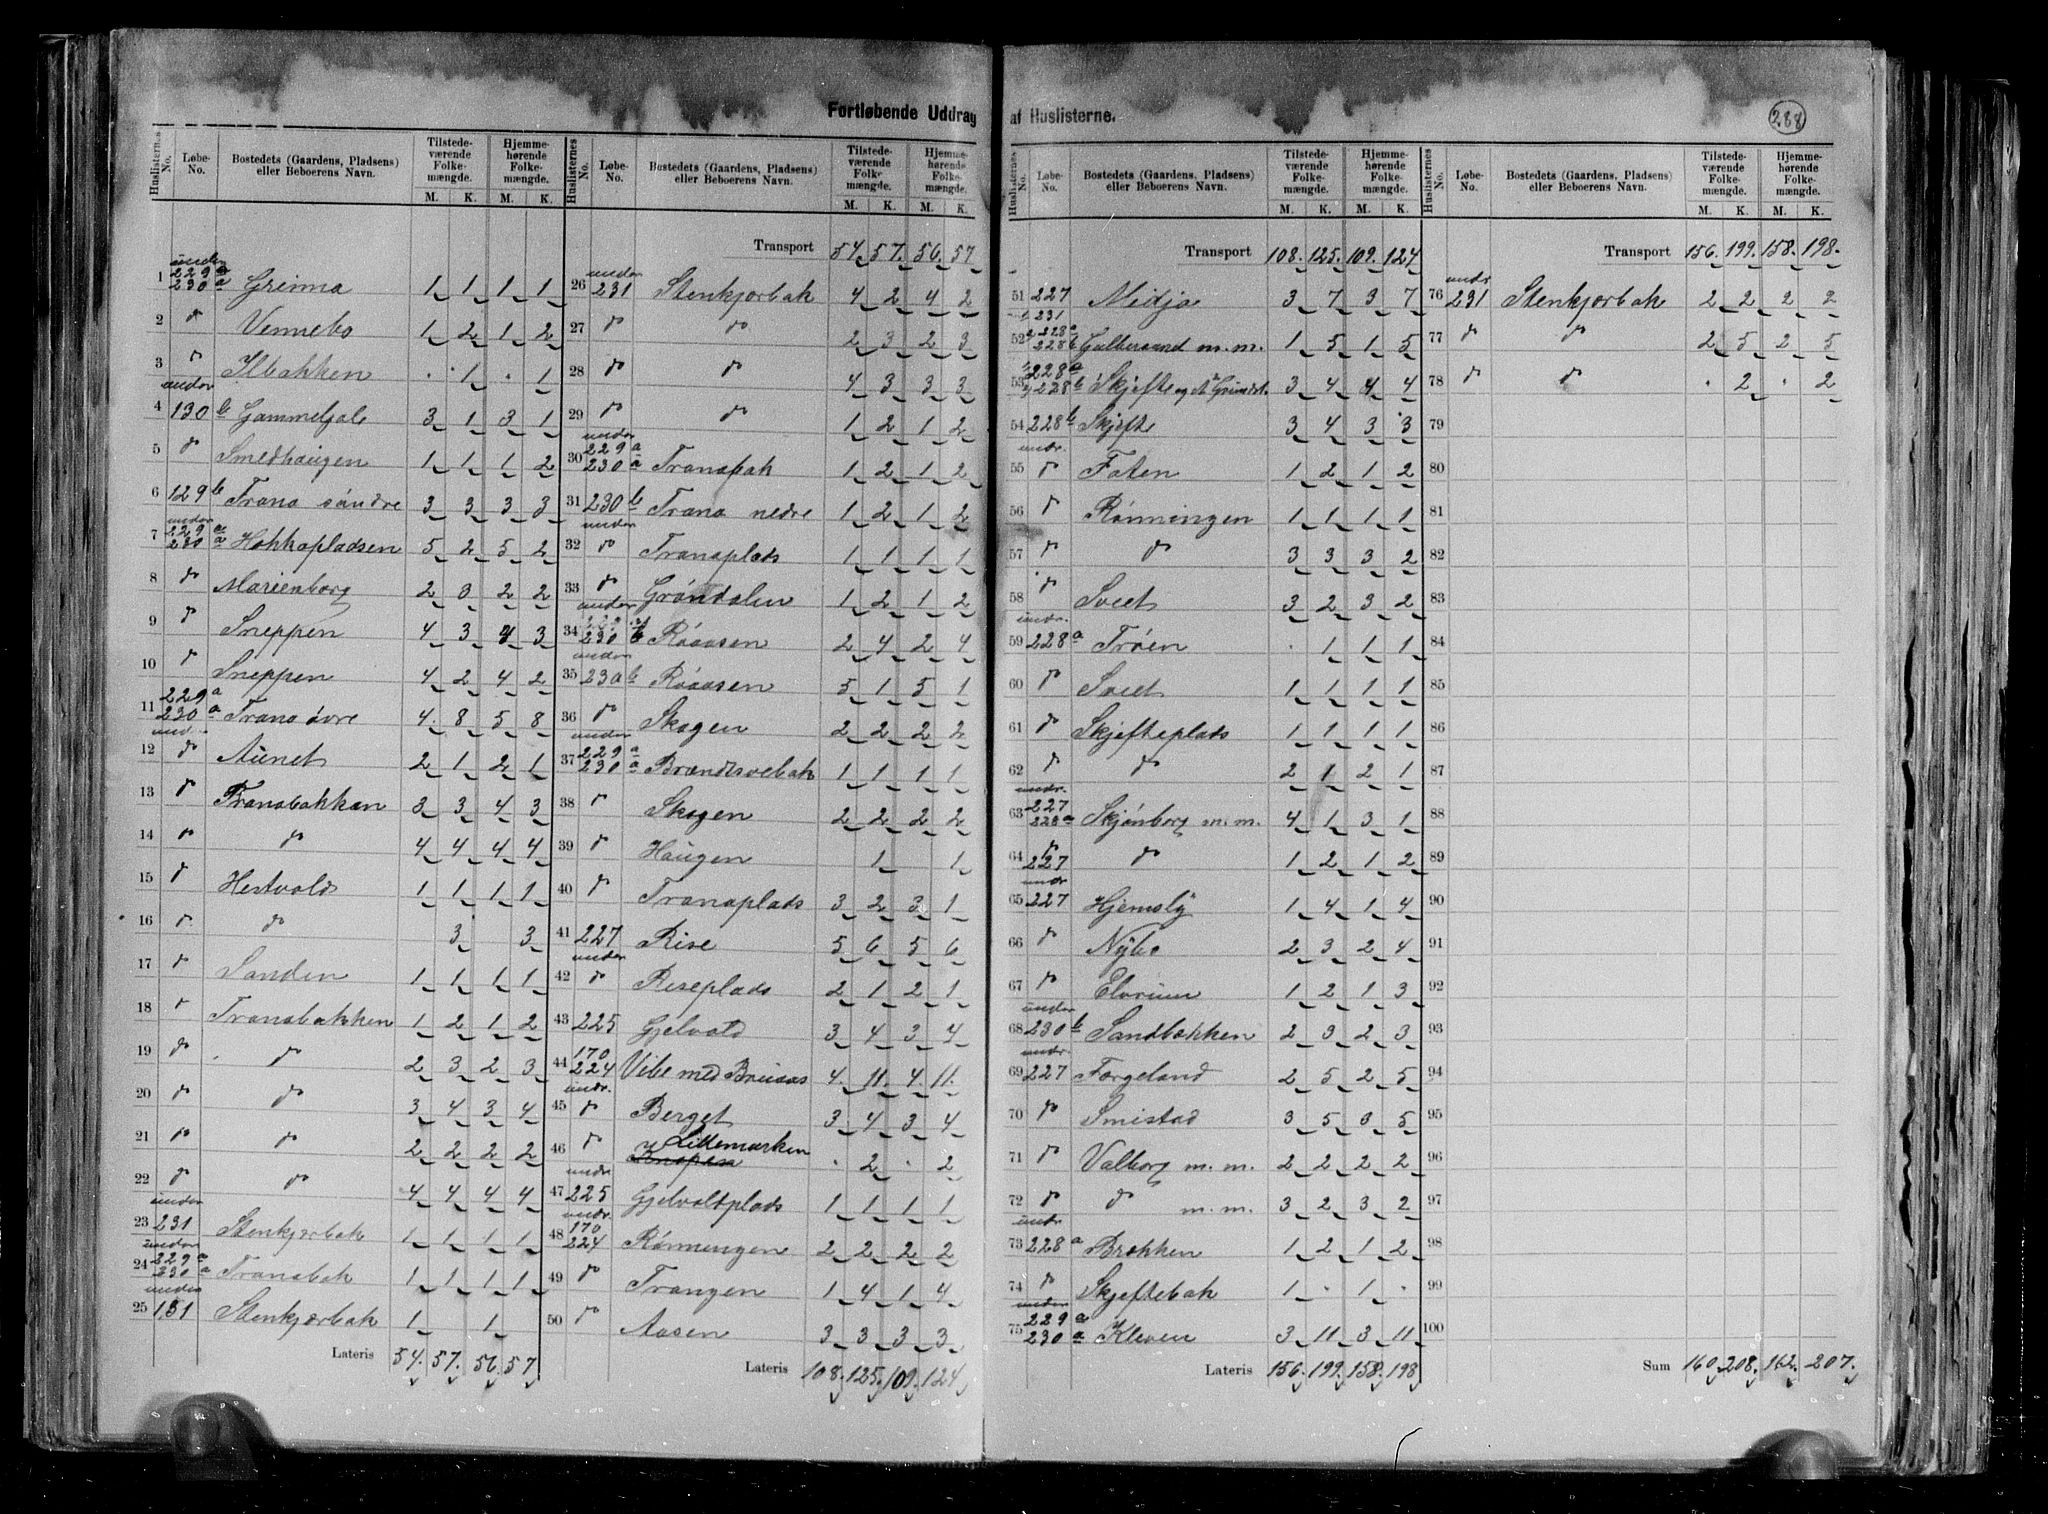 Fortløbende Uddrag af Huslisterne.
288
Huslisternes No. Løbe-No. Bostedets (Gaardens, Pladsens) eller Beboerens Navn. Tilstedeværende Folkemængde. M. K. Hjemmehørende Folkemængde. M. K.
1 under 229 a 230 a Grinna 1 1 1 1
2 " Vennebo 1 2 1 2
3 " Ilbakken . 1 . 1
4 under 130 b Gammeljale 3 1 3 1
5 " Smedhaugen 1 1 1 2
6 129 b Trana søndre 3 3 3 3
7 under 229 a 230 a Hokkapladsen 5 2 5 2
8 " Marienborg 2 3 2 2
9 " Sneppen 4 3 4 3
10 " Sneppen 4 2 4 2
11 229 a 230 a Trana øvre 4 8 5 8
12 und. " Aunet 2 1 2 1
13 " Tranabakkan 3 3 4 3
14 " " 4 4 4 4
15 " Hestvold 1 1 1 1
16 " " 3 3
17 " Sanden 1 1 1 1
18 " Tranabakken 1 2 1 2
19 " " 2 3 2 3
20 " " 3 4 3 4
21 " " 2 2 2 2
22 " " 4 4 4 4
23 under 231 Stenkjærbak 1 1 1 1
24 under 229 a 230 a Tranabak 1 1 1 1
25 under 131 Stenkjærbak 1 1
Lateris 54. 57. 56. 57
Huslisternes No. Løbe-No. Bostedets (Gaardens, Pladsens) eller Beboerens Navn. Tilstedeværende Folkemængde. M. K. Hjemmehørende Folkemængde. M. K.
Transport 54. 57. 56. 57
26 under 231 Stenkjærbak 4 2 4 2
27 " " 2 3 2 3
28 " " 4 3 3 3
29 " " 1 2 1 2
30 under 229 a 230 a Tranabak 1 2 1 2
31 230 b Trana nedre 1 2 1 2
32 under " Tranaplads 1 1 1 1
33 " Grøndalen 1 2 1 2
34 under 229 230 b Røaasen 2 4 2 4
35 under 230 b Røaasen 5 1 5 1
36 " Skogen 2 2 2 2
37 under 229 a 230 a Brandtsvebak 1 1 1 1
38 " Skogen 2 2 2 2
39 " Haugen 1 1
40 " Tranaplads 3 2 3 1
41 227 Rise 5 6 5 6
42 under " Riseplads 2 1 2 1
43 225 Gjelvold 3 4 3 4
44 170 224 Vibe med Bruaas 4. 11. 4. 11.
45 undr. " Berget 3 4 3 4
46 " Lillemarken . 2 . 2
47 undr 225 Gjelvoldplads 1 1 1 1
48 undr. 170 224 Rønningen 2 2 2 2
49 " Trangen 1 4 1 4
50 " Aasen 3 3 3 3
Lateris 108. 125. 109. 124
Huslisternes No. Løbe-No. Bostedets (Gaardens, Pladsens) eller Beboerens Navn. Tilstedeværende Folkemængde. M. K. Hjemmehørende Folkemængde. M. K.
Transport 108. 125. 109. 124
51 227 231 Midjo 3 7 3 7
52 228 a 228 b Gulbersund m. m. 1 5 1 5
53 228 a 228 b Skjefte og et Grundst. 3 4 4 4
54 228 b Skjefte 3 4 3 3
55 undr. " Foten 1 2 1 2
56 " Rønningen 1 1 1 1
57 " " 3 3 3 2
58 " Sveet 3 2 3 2
59 undr. 228 a Trøen . 1 1 1
60 " Sveet 1 1 1 1
61 " Skjefteplads 1 1 1 1
62 " " 2 1 2 1
63 undr. 227 228 a Skjønborg m. m. 4 1 3 1
64 " 227 " 1 2 1 2
65 undr 227 Hjemsly 1 4 1 4
66 " Nybo 2 3 2 4
67 " Elvrum 1 2 1 3
68 under 230 b Sandbakken 2 3 2 3
69 undr. 227 Fargeland 2 5 2 5
70 " Smistad 3 5 3 5
71 " Valborg m. m. 2 2 2 2
72 " " m. m. 3 2 3 2
73 undr. 228 a Brækken 1 2 1 2
74 " Skjeftebak 1 . 1 .
75 under 229 a 230 a Kleven 3 11 3 11
Lateris 156. 199. 158. 198
Huslisternes No. Løbe-No. Bostedets (Gaardens, Pladsens) eller Beboerens Navn. Tilstedeværende Folkemængde. M. K. Hjemmehørende Folkemængde. M. K.
Transport 156. 199. 158. 198.
76 undr 231 Stenkjærbak 2 2 2 2
77 " " 2 5 2 5
78 " " . 2 . 2
79
80
81
82
83
84
85
86
87
88
89
90
91
92
93
94
95
96
97
98
99
100
Sum 160. 208. 162. 207.